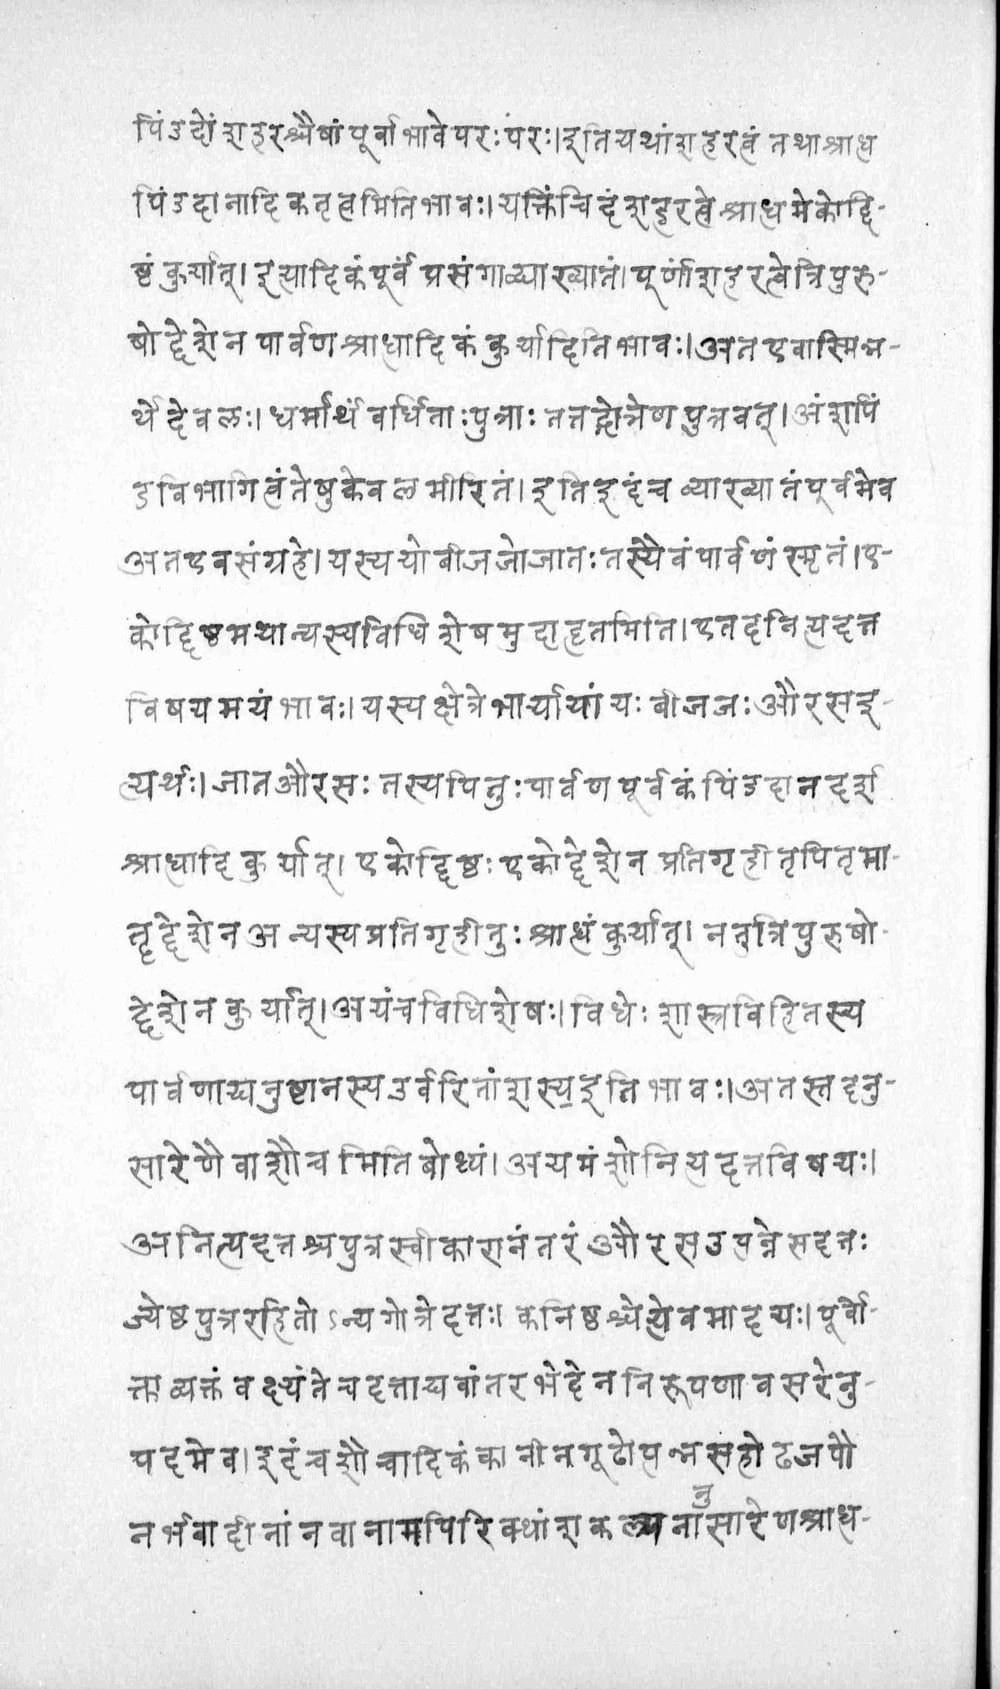 पिंडदोंशहरश्चैषां पूर्वाभावेपरःपरः।इतियथांशहरत्वं तथाश्राध
पिंडदानादिकतृत्वमितिभावः।यत्किंचिदंशहरत्वेश्राधमेकोद्दि-
ष्टं कुर्यात्। इत्यादिकंपूर्वं प्रसंगाव्द्याख्यातं। पूर्णांशहरत्वेत्रिपुरु-
षोद्देशेन पार्वणश्राधादिकं कुर्यादितिभावः।अतएवास्मिन्न-
र्थेदेवलः। धर्मार्थंवर्धिताःपुत्राः तत्तद्गोत्रेण पुत्रवत्। अंशपिं
डविभागित्वंतेषुकेवलमीरितं। इतिइदंच व्याख्यातंपूर्वमेव
अतएवसंग्रहे। यस्ययोबीजजोजातः तस्यैवंपार्वणं स्मृतं।ए-
कोद्दिष्टमथान्यस्यविधिशेषमुदाहृतमिति। एतदनित्यदत्त
विषयमयंभावः। यस्यक्षेत्रेभार्यायां यः बीजजः औरसइ-
त्यर्थः। जातऔरसः तस्यपितुःपार्वणपूर्वकंपिंडदानदर्श
श्राधादि कुर्यात्। एकोद्दिष्टः एकोद्देशेन प्रतिगृहीतृपितृमा-
तृद्देशेनअन्यस्यप्रतिगृहीतुः श्राधं कुर्यात्। नतुत्रिपुरुषो-
द्देशेन कुर्यात्।अयंचविधिशेषः। विधेः शास्त्रविहितस्य
पार्वणाद्यनुष्टानस्यउर्वरितांशस्यइतिभावः।अतस्तदनु-
सारेणैवाशौचमितिबोध्यं। अयमंशोनित्यदत्तविषयः।
अनित्यदत्तश्चपुत्रस्वीकारानंतरं औरसउत्पन्नेसदत्तः
ज्येष्ठपुत्ररहितोऽन्यगोत्रेदत्तः। कनिष्ठश्चेत्येवमादयः। पूर्वो-
क्ता व्यक्तं वक्ष्यंतेचदत्ताद्यवांतरभेदेननिरूपणावसरेनु-
पदमेव। इदंचशौचादिकंकानीनगूढोत्पन्नसहोढजपौ
नर्भवादीनांनवानामपिरिक्थांशकल्पनानुसारेणश्राध-